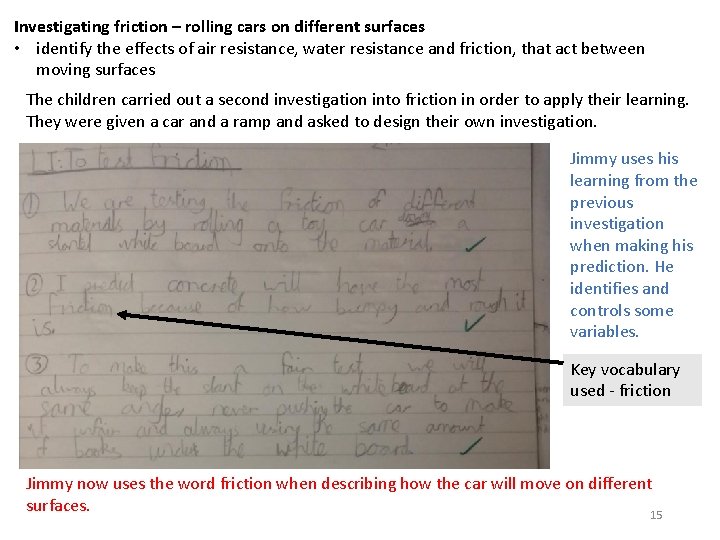 Investigating friction – rolling cars on different surfaces
• identify the effects of air resistance, water resistance and friction, that act between
moving surfaces
The children carried out a second investigation into friction in order to apply their learning.
They were given a car and a ramp and asked to design their own investigation.
LI: To test friction
① We are testing the friction of different
materials by rolling a toy car a
slanted white board onto the material.
② I predict concrete will have the most
friction because of how bumpy and rough it
is.
③ To make this a fair test, we will
always keep the slant on the whiteboard at the
same angle, never pushing the car to make
it unfair and always using the same amount
of books under the white board.
Jimmy uses his
learning from the
previous
investigation
when making his
prediction. He
identifies and
controls some
variables.
Key vocabulary
used - friction
Jimmy now uses the word friction when describing how the car will move on different
surfaces.
15